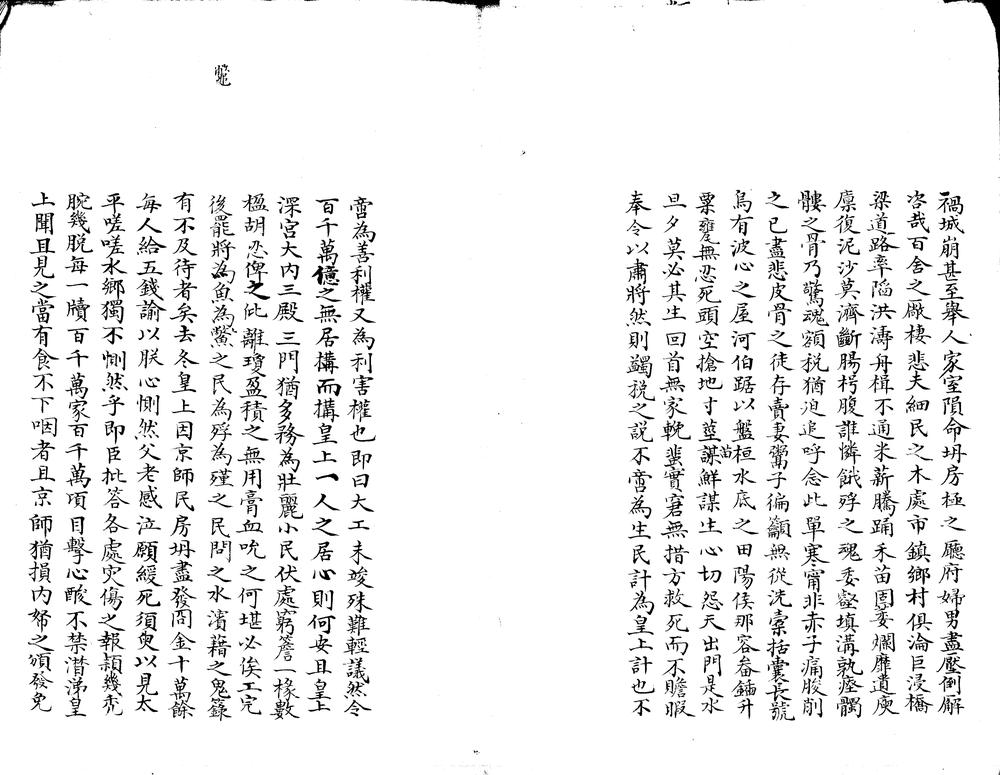 禍城崩甚至舉人家室隕命坍房極之廳府婦男盡壓倒廨
咨哉百舍之厫棲悲夫細民之木處市鎮鄉村俱淪巨浸橋
梁道路率陷洪濤舟楫不通米薪騰踊禾苗園委爛靡遺庾
廪復泥沙莫濟斷腸枵腹誰憐餓殍之魂委壑填溝孰瘞髑
髏之骨乃驚魂額稅猶迫追呼念此單寒甯非赤子痛朘削
之已盡悲皮骨之徒存賣妻鬻子徧籲無從洗橐括囊長號
烏有波心之屋河伯踞以盤桓水底之田陽侯那容畚鍤升
粟甕無忍死頭空搶地寸莖苗謀鮮謀生心切怨天出門是水
旦夕莫必其生回首無家輓蜚實窘無措方救死而不贍暇
奉令以肅將然則蠲稅之説不啻為生民計為皇上計也不
啻為善利權又為利害權也即曰大工未竣殊難輕議然令
百千萬億之無居構而構皇上一人之居心則何安且皇上
深宮大内三殿三門猶多務為壯麗小民伏處窮簷一椽數
楹胡忍俾之仳離瓊盈積之無用膏血吮之何堪必俟工完
後罷將為魚為鱉之民為殍為殣之民問之水濱藉之鬼籙
有不及待者矣去冬皇上因京師民房坍盡發冏金十萬餘
每人給五錢諭以朕心惻然父老感泣願緩死須臾以見太
平嗟嗟水鄉獨不惻然乎即臣批答各處灾傷之報頴幾秃
腕幾脱每一牘百千萬家百千萬項目擊心酸不禁潸涕皇
上聞且見之當有食不下咽者且京師猶損内帑之頒發免
鱉